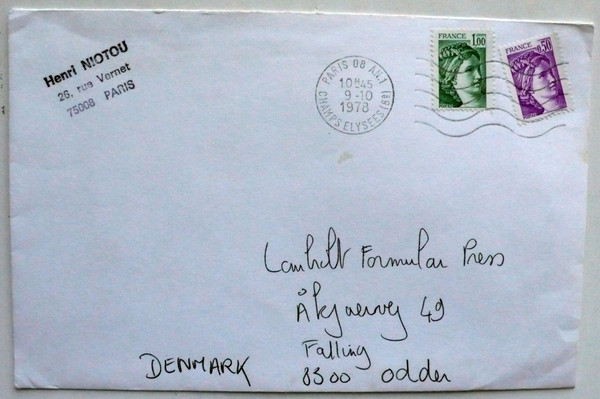 Henri NIOTOU
26, rue Vernet
75008 PARIS
PARIS 08 AN.1
10H45
9-10
1978
CHAMPS ELYSEES (8e)
FRANCE
1,00
FRANCE
0,50
Lanholt Formular Press
Åkjaervej 49
Falling
8300 Odder
DENMARK